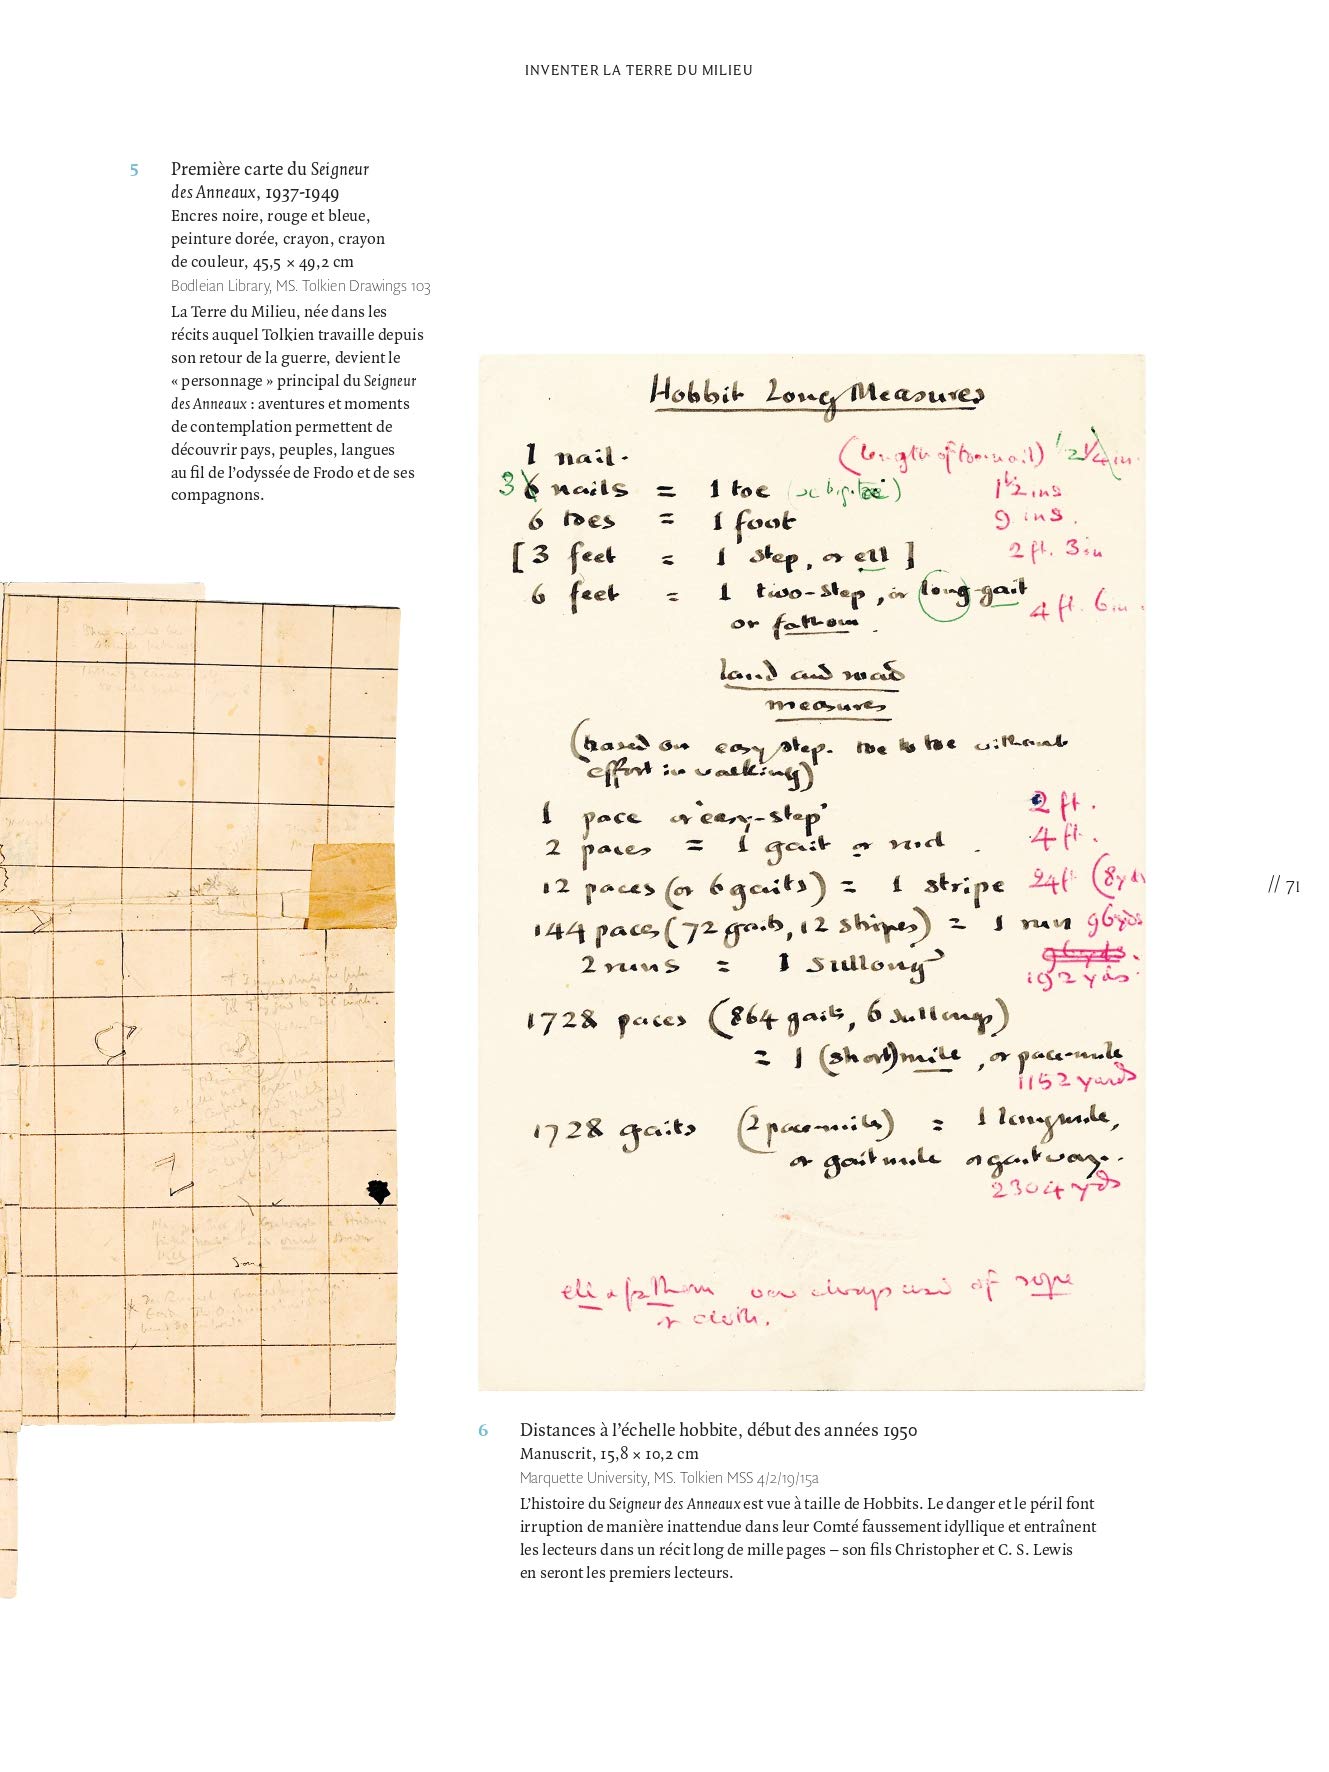 INVENTER LA TERRE DU MILIEU
5
Première carte du Seigneur
des Anneaux, 1937-1949
Encres noire, rouge et bleue,
peinture dorée, crayon, crayon
de couleur, 45,5 × 49,2 cm
Bodleian Library, MS. Tolkien Drawings 103
La Terre du Milieu, née dans les
récits auquel Tolkien travaille depuis
son retour de la guerre, devient le
« personnage » principal du Seigneur
des Anneaux : aventures et moments
de contemplation permettent de
découvrir pays, peuples, langues
au fil de l'odyssée de Frodo et de ses
compagnons.
Hobbit Long Measures
1 nail. (length of toenail) 1/2 1/4 in.
3 6 nails = 1 toe 1 1/2 ins
6 toes = 1 foot 9 ins.
[3 feet = 1 step, or ell] 2 ft. 3 in
6 feet = 1 two-step, or long-gait
or fathom. 4 ft. 6 in.
land and road
measures
(based on easy step. toe to toe without
effort in walking)
1 pace or 'easy-step' 2 ft.
2 paces = 1 gait or rod. 4 ft.
12 paces (or 6 gaits) = 1 stripe 24 ft (8 yds
144 paces (72 gaits, 12 stripes) = 1 run 96 yds
2 runs = 1 sullong 96 yds.
192 yds.
1728 paces (864 gaits, 6 sullongs)
= 1 (short) mile, or pace-mile
1152 yards
1728 gaits (2 pace-miles) = 1 long mile,
or gait mile or gaitway.
2304 yds
ell & fathom are always used of rope
or cloth.
// 71
6
Distances à l'échelle hobbite, début des années 1950
Manuscrit, 15,8 × 10,2 cm
Marquette University, MS. Tolkien MSS 4/2/19/15a
L'histoire du Seigneur des Anneaux est vue à taille de Hobbits. Le danger et le péril font
irruption de manière inattendue dans leur Comté faussement idyllique et entraînent
les lecteurs dans un récit long de mille pages – son fils Christopher et C. S. Lewis
en seront les premiers lecteurs.